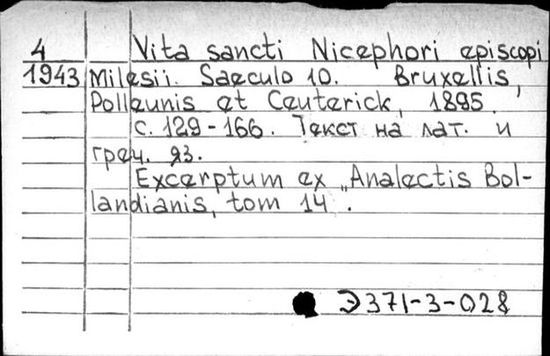 4 Vita sancti Nicephori episcopi
1943 Milesii. Saeculo 10. Bruxellis,
Polleunis et Ceuterick, 1895.
с. 129-166. Текст на лат. и
греч. яз.
Excerptum ex „Analectis Bol-
landianis, tom 14.
Э371-3-028